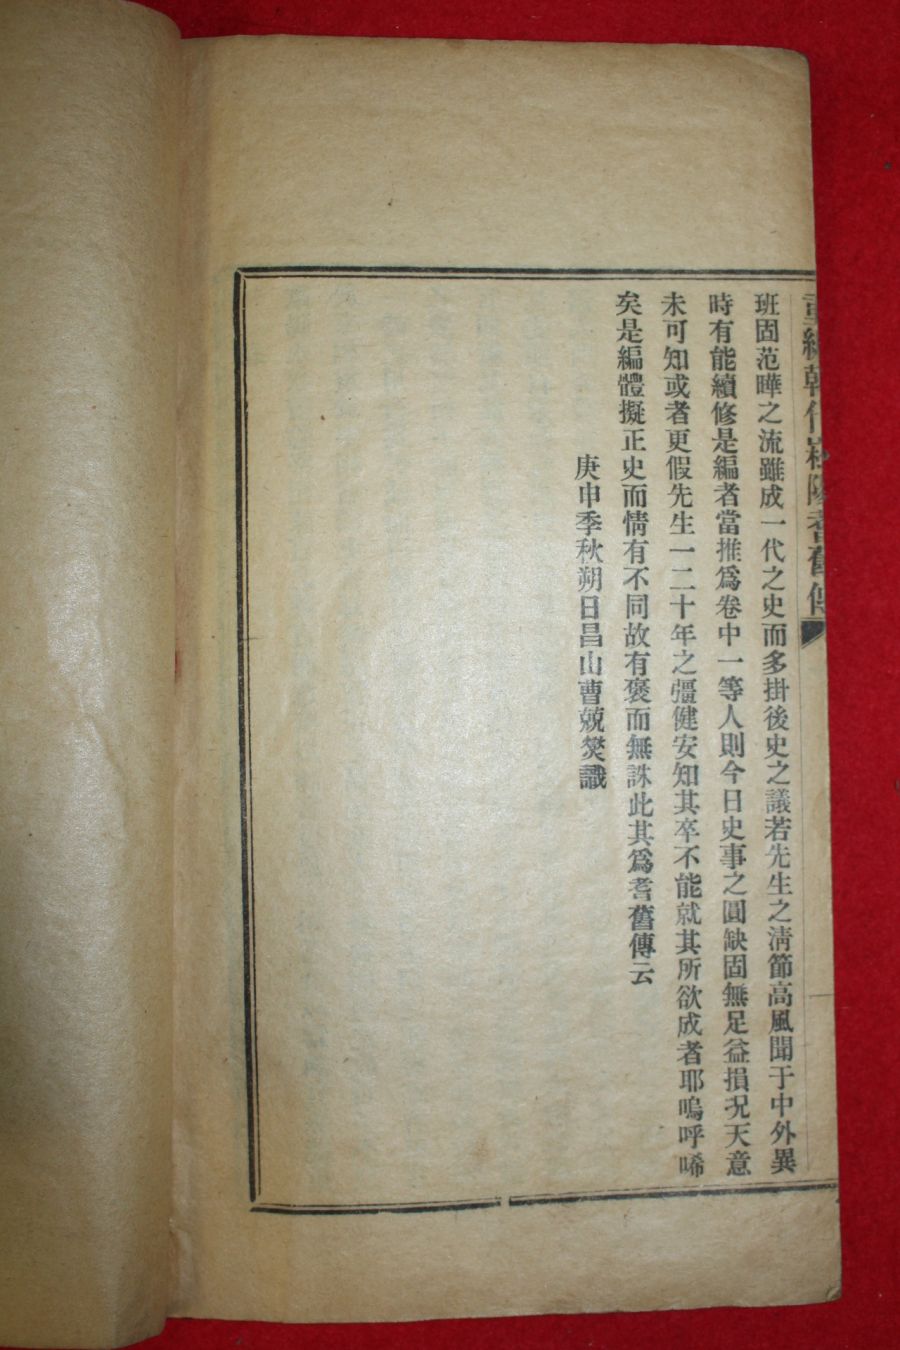 重編韓代崧陽耆舊傳
班固范曄之流雖成一代之史而多掛後史之議若先生之淸節高風聞于中外異
時有能續修是編者當推爲卷中一等人則今日史事之圓缺固無足益損況天意
未可知或者更假先生一二十年之彊健安知其卒不能就其所欲成者耶嗚呼唏
矣是編體擬正史而情有不同故有褒而無誅此其爲耆舊傳云
庚申季秋朔日昌山曹兢燮識